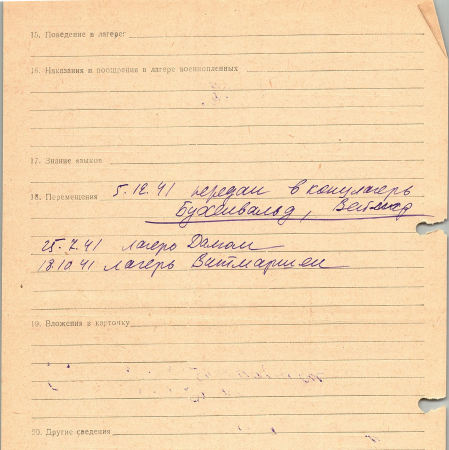 15. Поведение в лагере
16. Наказания и поощрения в лагере военнопленных
17. Знание языков
18. Перемещения 5.12.41 передан в концлагерь
Бухенвальд, Веймар
25.7.41 лагерь Даман
13.10 41 лагерь Витмаршен
19. Вложения в карточку
20. Другие сведения